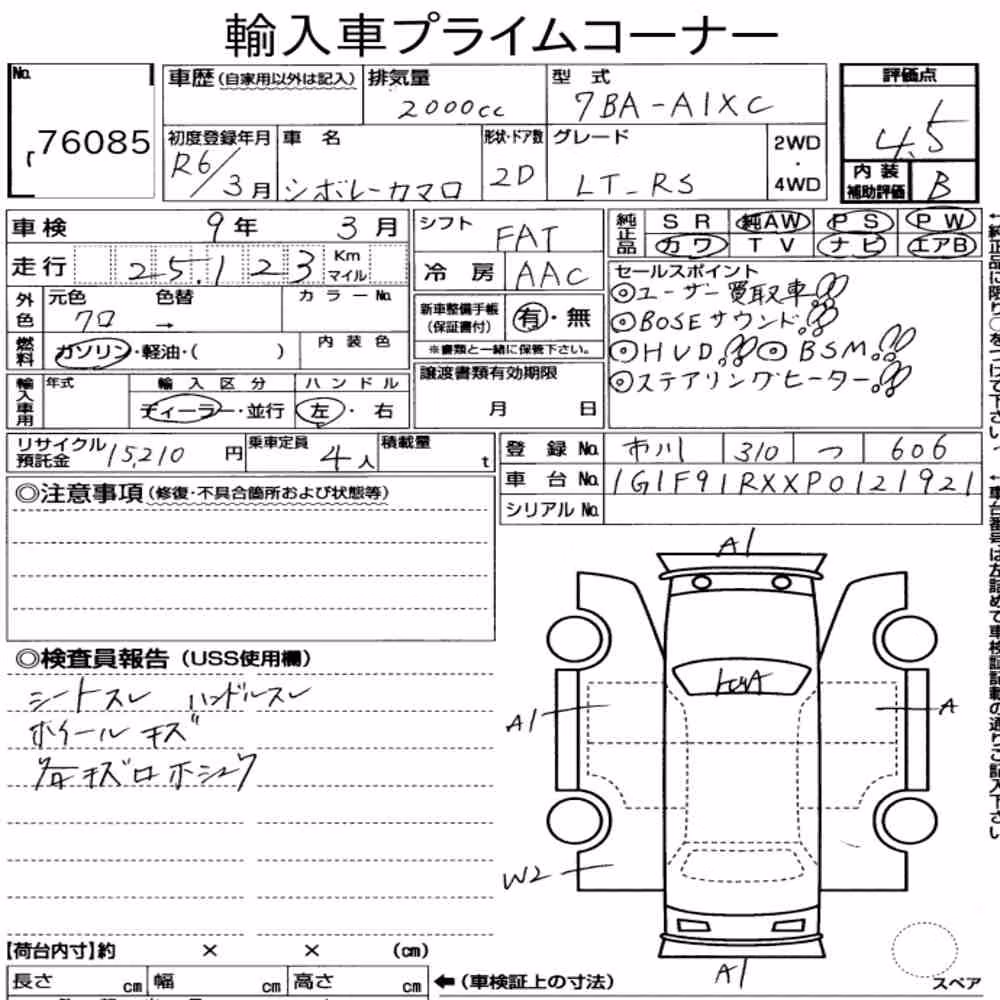 輸入車プライムコーナー
No. 76085
車歴 (自家用以外は記入) 排気量 2000cc 型式 7BA-A1XC
評価点 4.5
初度登録年月 R6/3月 車名 シボレーカマロ 形状・ドア数 2D グレード LT-RS 2WD・4WD
内装補助評価 B
車検 9年 3月
シフト FAT
純正品 SR 純AW PS PW
カワ TV ナビ エアB
走行 25,123 Km マイル
冷房 AAC
セールスポイント
◎ユーザー買取車!!
◎BOSEサウンド!!
◎HUD!! ◎BSM!!
◎ステアリングヒーター!!
外色 元色 クロ → 色替 カラーNo.
新車整備手帳 (保証書付) 有・無
※書類と一緒に保管下さい。
燃料 ガソリン・軽油・( ) 内装色
譲渡書類有効期限
月 日
輸入車用 年式 輸入区分 ハンドル
ディーラー・並行 左・右
リサイクル預託金 15,210円 乗車定員 4人 積載量 t
登録No. 市川 310 つ 606
車台No. 1G1F91RXXP0121921
シリアルNo.
◎注意事項 (修復・不具合箇所および状態等)
◎検査員報告 (USS使用欄)
シートスレ ハンドルスレ
ホイールキズ
各キズロホシュウ
A1
A1
A
W2
A1
【荷台内寸】約 × × (cm)
長さ cm 幅 cm 高さ cm ←(車検証上の寸法)
スペア
←純正品に限り○をつけて下さい。
←車台番号は左詰めで車検証記載の通りご記入下さい